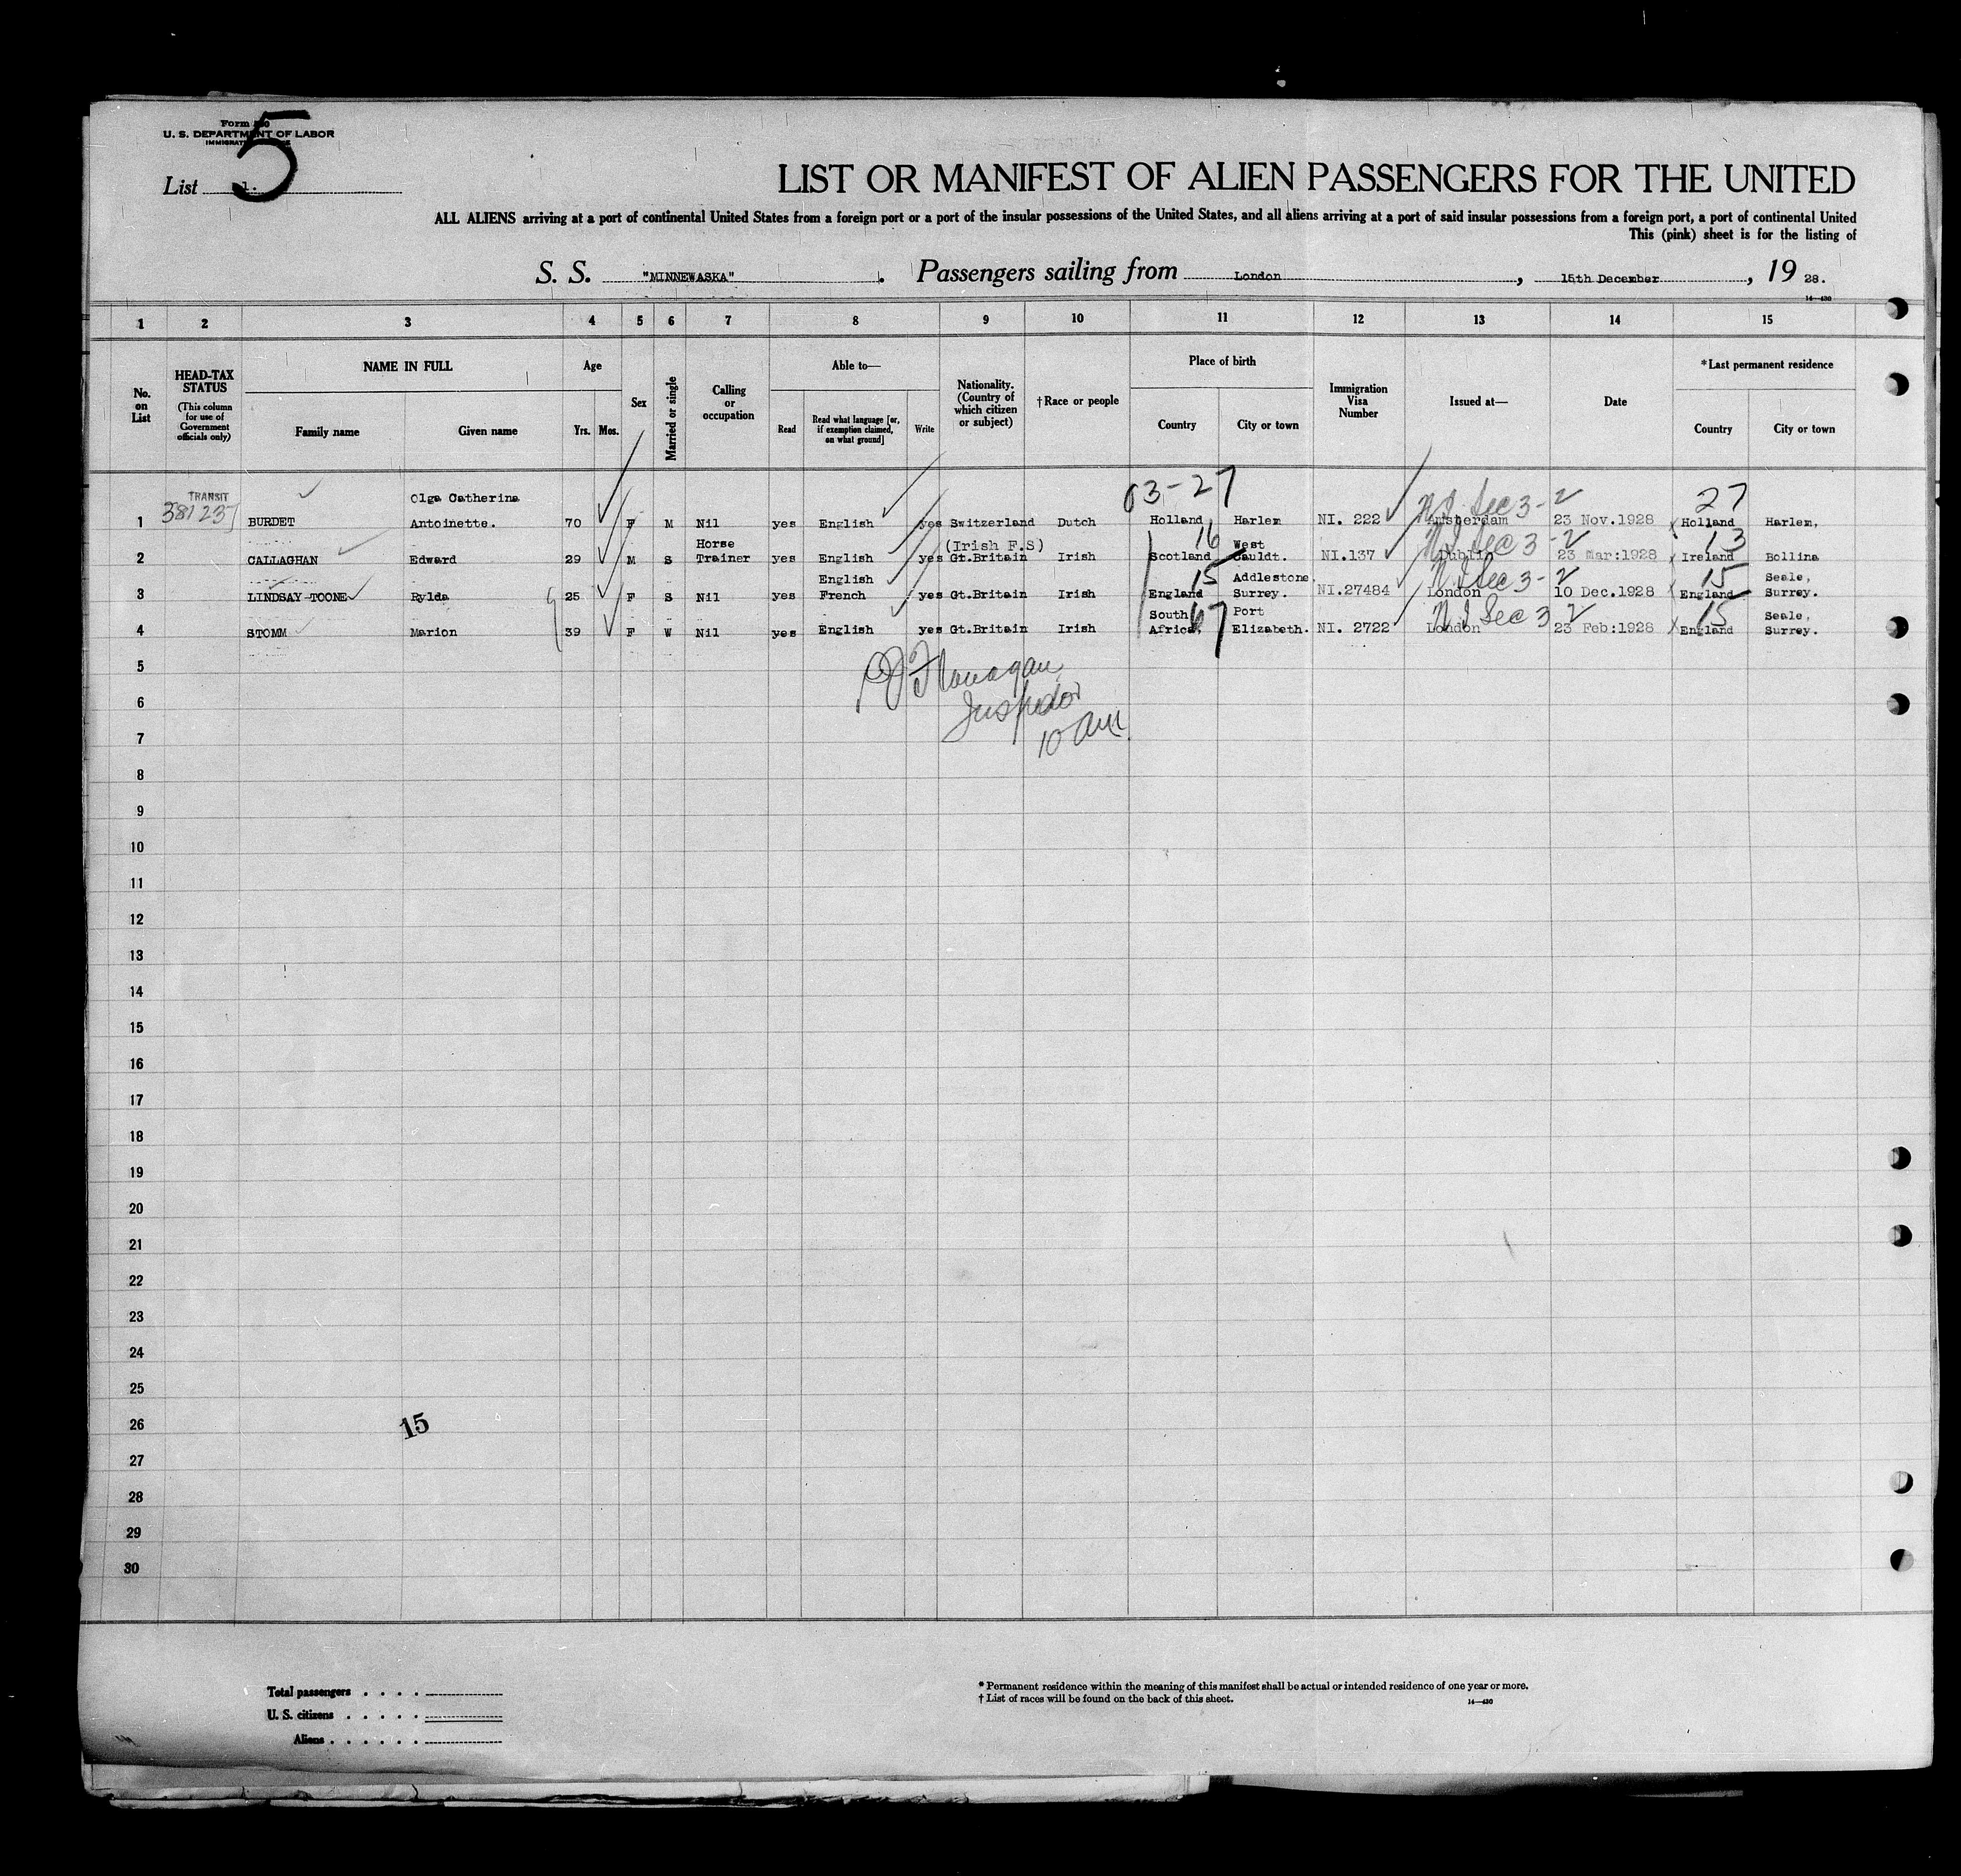 Form 500
U. S. DEPARTMENT OF LABOR
IMMIGRATION SERVICE
5
List 1.
LIST OR MANIFEST OF ALIEN PASSENGERS FOR THE UNITED
ALL ALIENS arriving at a port of continental United States from a foreign port or a port of the insular possessions of the United States, and all aliens arriving at a port of said insular possessions from a foreign port, a port of continental United
This (pink) sheet is for the listing of
S. S. "MINNEWASKA" . Passengers sailing from London , 15th December , 19 28.
14—430
1 2 3 4 5 6 7 8 9 10 11 12 13 14 15
No. on List
HEAD-TAX STATUS (This column for use of Government officials only)
NAME IN FULL Family name Given name
Age Yrs. Mos.
Sex
Married or single
Calling or occupation
Able to— Read Read what language [or, if exemption claimed, on what ground] Write
Nationality. (Country of which citizen or subject)
†Race or people
Place of birth Country City or town
Immigration Visa Number
Issued at—
Date
*Last permanent residence Country City or town
TRANSIT Olga Catherina 03-27 N I Sec 3-2 27
1 38123 BURDET Antoinette. 70 F M Nil yes English yes Switzerland Dutch Holland Harlem NI. 222 Amsterdam 23 Nov.1928 Holland Harlem,
Horse (Irish F.S) 16 West N I Sec 3-2 13
2 CALLAGHAN Edward 29 M S Trainer yes English yes Gt.Britain Irish Scotland Cauldt. NI.137 Dublin 23 Mar:1928 Ireland Bollina
English 15 Addlestone, N I Sec 3-2 15 Seale,
3 LINDSAY-TOONE Rylda 25 F S Nil yes French yes Gt.Britain Irish England Surrey. NI.27484 London 10 Dec.1928 England Surrey.
South 67 Port N I Sec 3 2 15 Seale,
4 STOMM Marion 39 F W Nil yes English yes Gt.Britain Irish Africa, Elizabeth. NI. 2722 London 23 Feb:1928 England Surrey.
5
Flanagan
6
Inspector
7
10 am.
8
9
10
11
12
13
14
15
16
17
18
19
20
21
22
23
24
25
26
15
27
28
29
30
Total passengers . . . .
U. S. citizens . . . . .
Aliens . . . . . .
* Permanent residence within the meaning of this manifest shall be actual or intended residence of one year or more.
† List of races will be found on the back of this sheet.
14—430